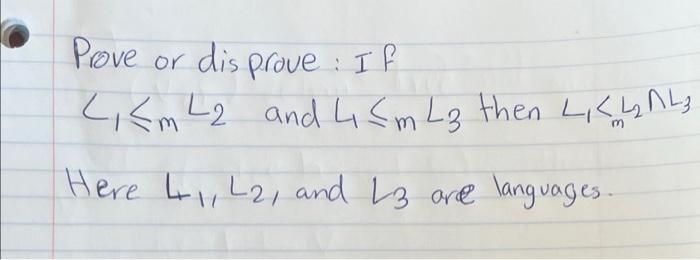 Prove or disprove : If
L₁ ≤ₘ L₂ and L₁ ≤ₘ L₃ then L₁ ≤ₘ L₂ ∩ L₃
Here L₁, L₂, and L₃ are languages.